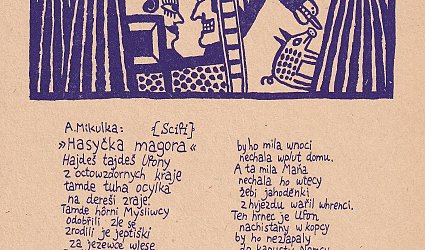 A.Mikulka: {Scifi}
»Hasyčka magora«
Hajdeš tajdeš Ufony
z octowzdornych kraje
tamde tuha ocylka
na dereši zraje.
Tamde hórni Mysliwcy
odobřili zle se
zrodili je jeptiški
za jezewce wlese
by ho mila wnoci
nechala wplut domu.
A ta mila Maňa
nechala ho wtecy
žebi jahoděnki
z hvjezdu wařil whrenci.
Ten hrnec je Ufon
nachistány w kopcy
by ho nezlapaly